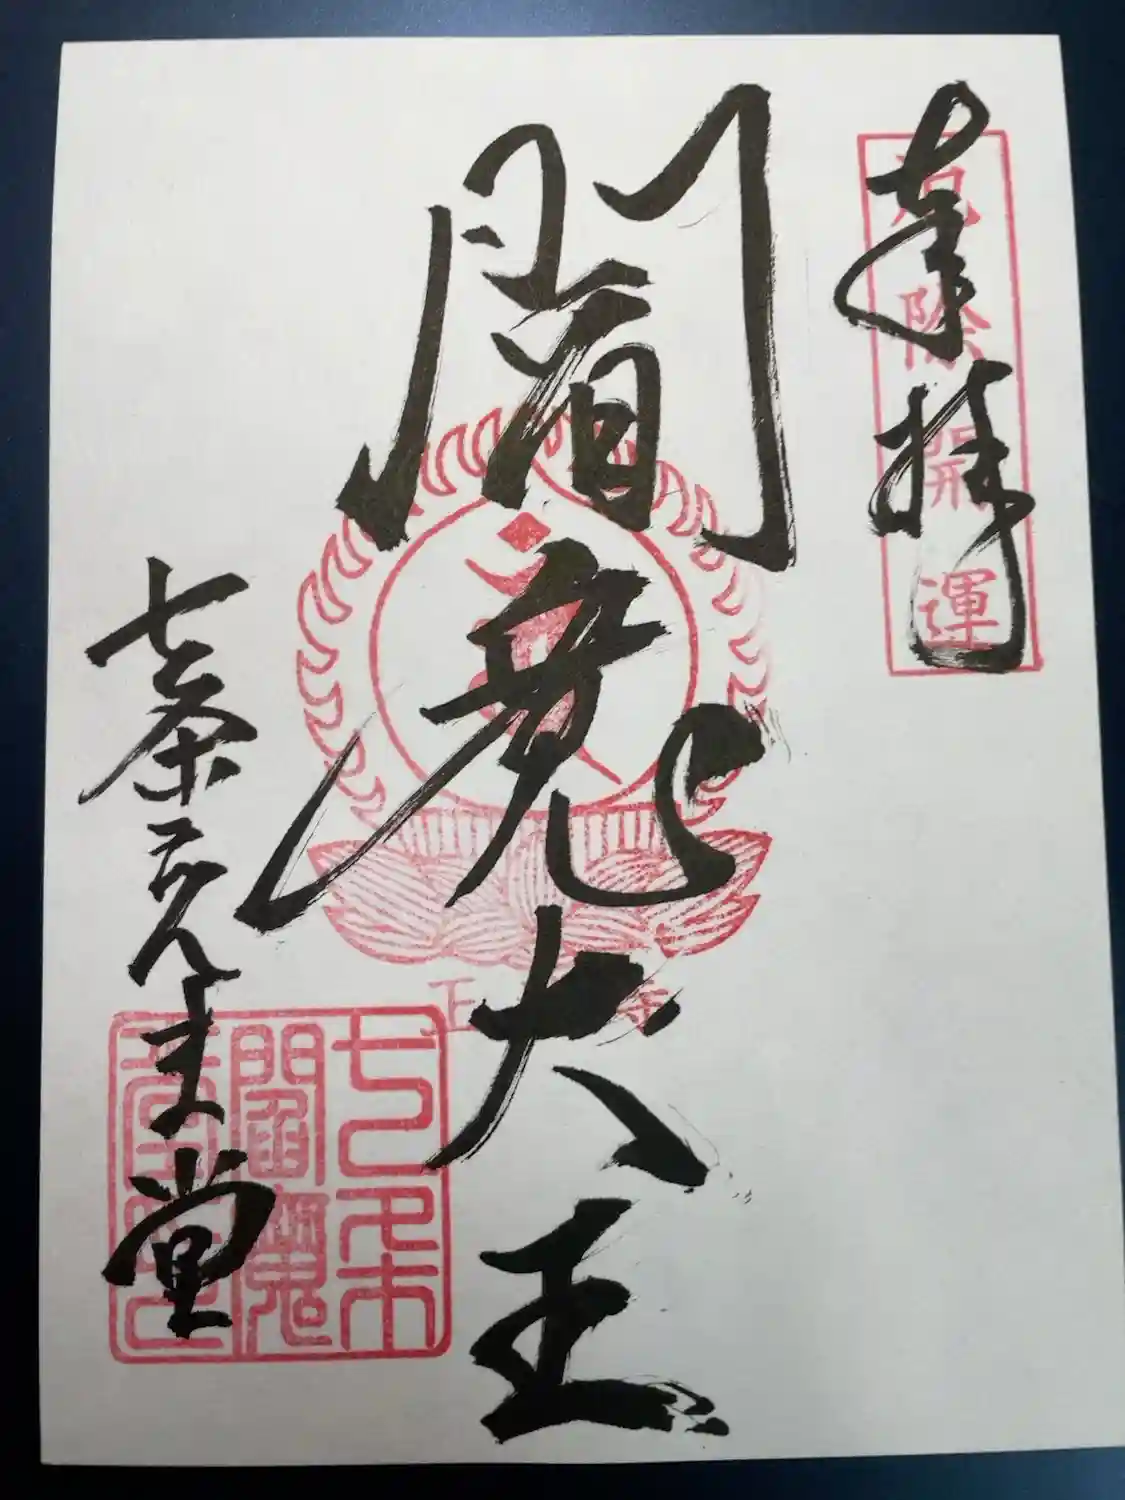 奉拝
厄除開運
閻魔大王
七条ゑんま堂
七条
閻魔
堂